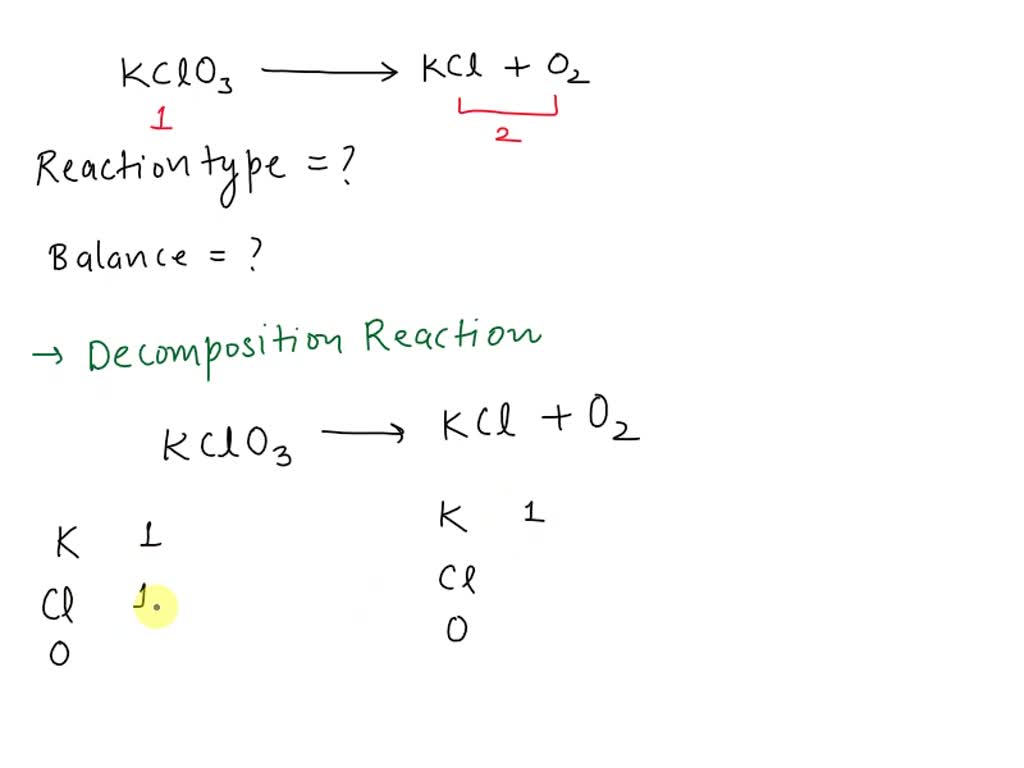 KClO₃ ⟶ KCl + O₂
1 2
Reaction type = ?
Balance = ?
→ Decomposition Reaction
KClO₃ ⟶ KCl + O₂
K 1 K 1
Cl 1 Cl
O O